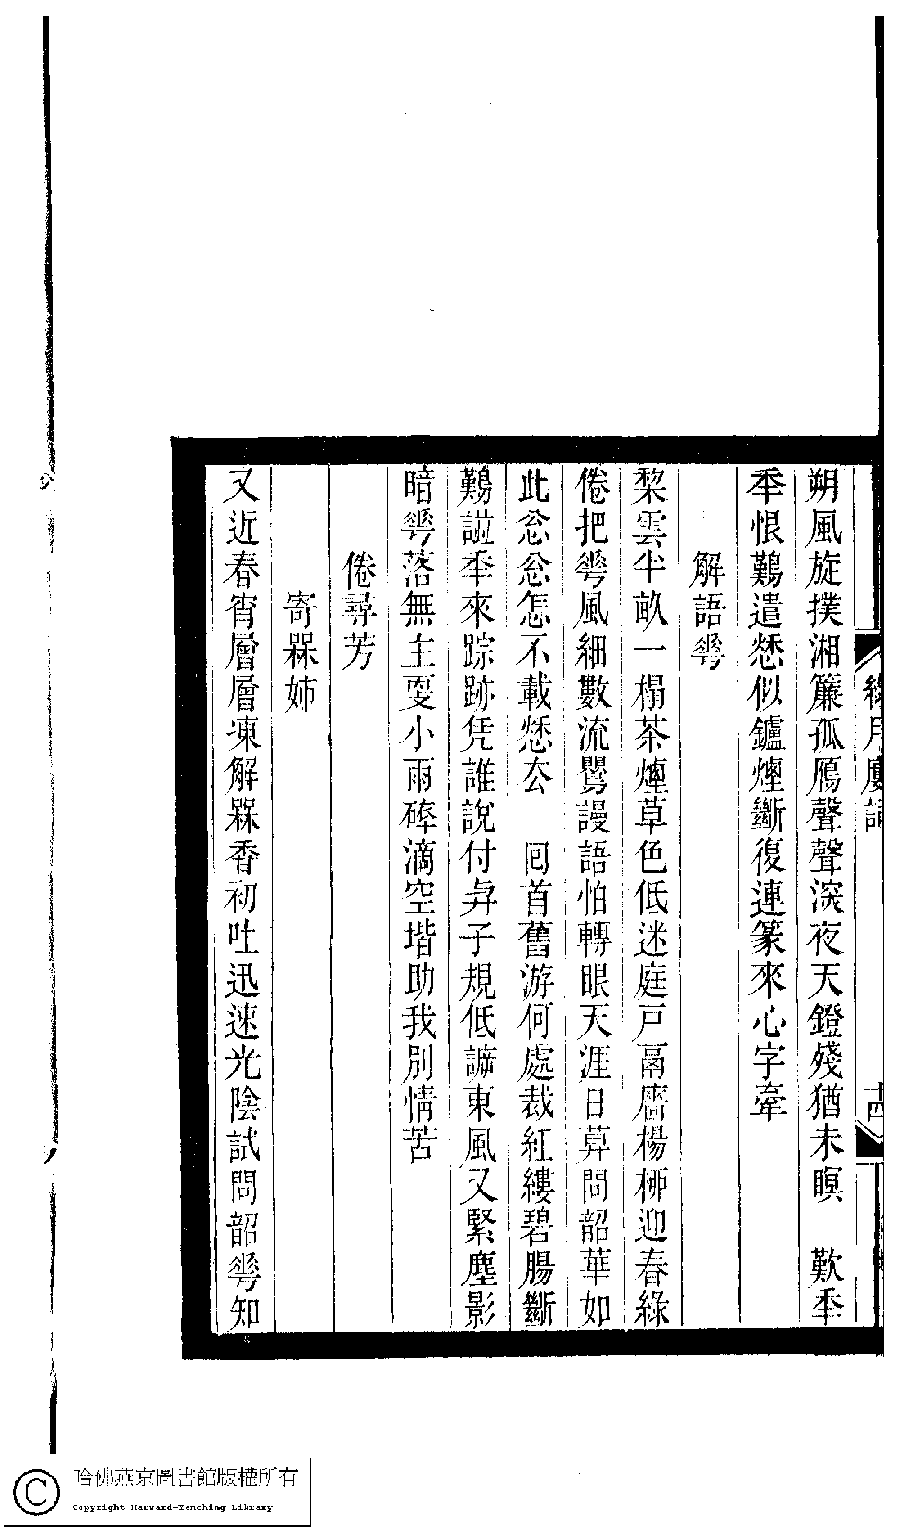 綠月廔詞
十四
朔風旋撲湘簾孤鴈聲聲深夜天鐙殘猶未暝　歎秊
秊恨難遣愁似鑪煙斷復連篆來心字牽
解語蕐
棃雲半畝一榻茶煙草色低迷庭戶鬲牆楊桺迎春綠
倦把蕐風細數流鶯謾語怕轉眼天涯日莫問韶華如
此忩忩怎不載愁厺　囘首舊游何處裁紅縷碧腸斷
難謎秊來踪跡凭誰說付與子規低謕東風又緊塵影
暗蕐落無主耍小雨碎滴空堦助我別情苦
倦尋芳
寄槑姊
又近春宵層層凍解槑香初吐迅速光陰試問韶蕐知
哈佛燕京圖書館版權所有
Copyright Harvard-Yenching Library